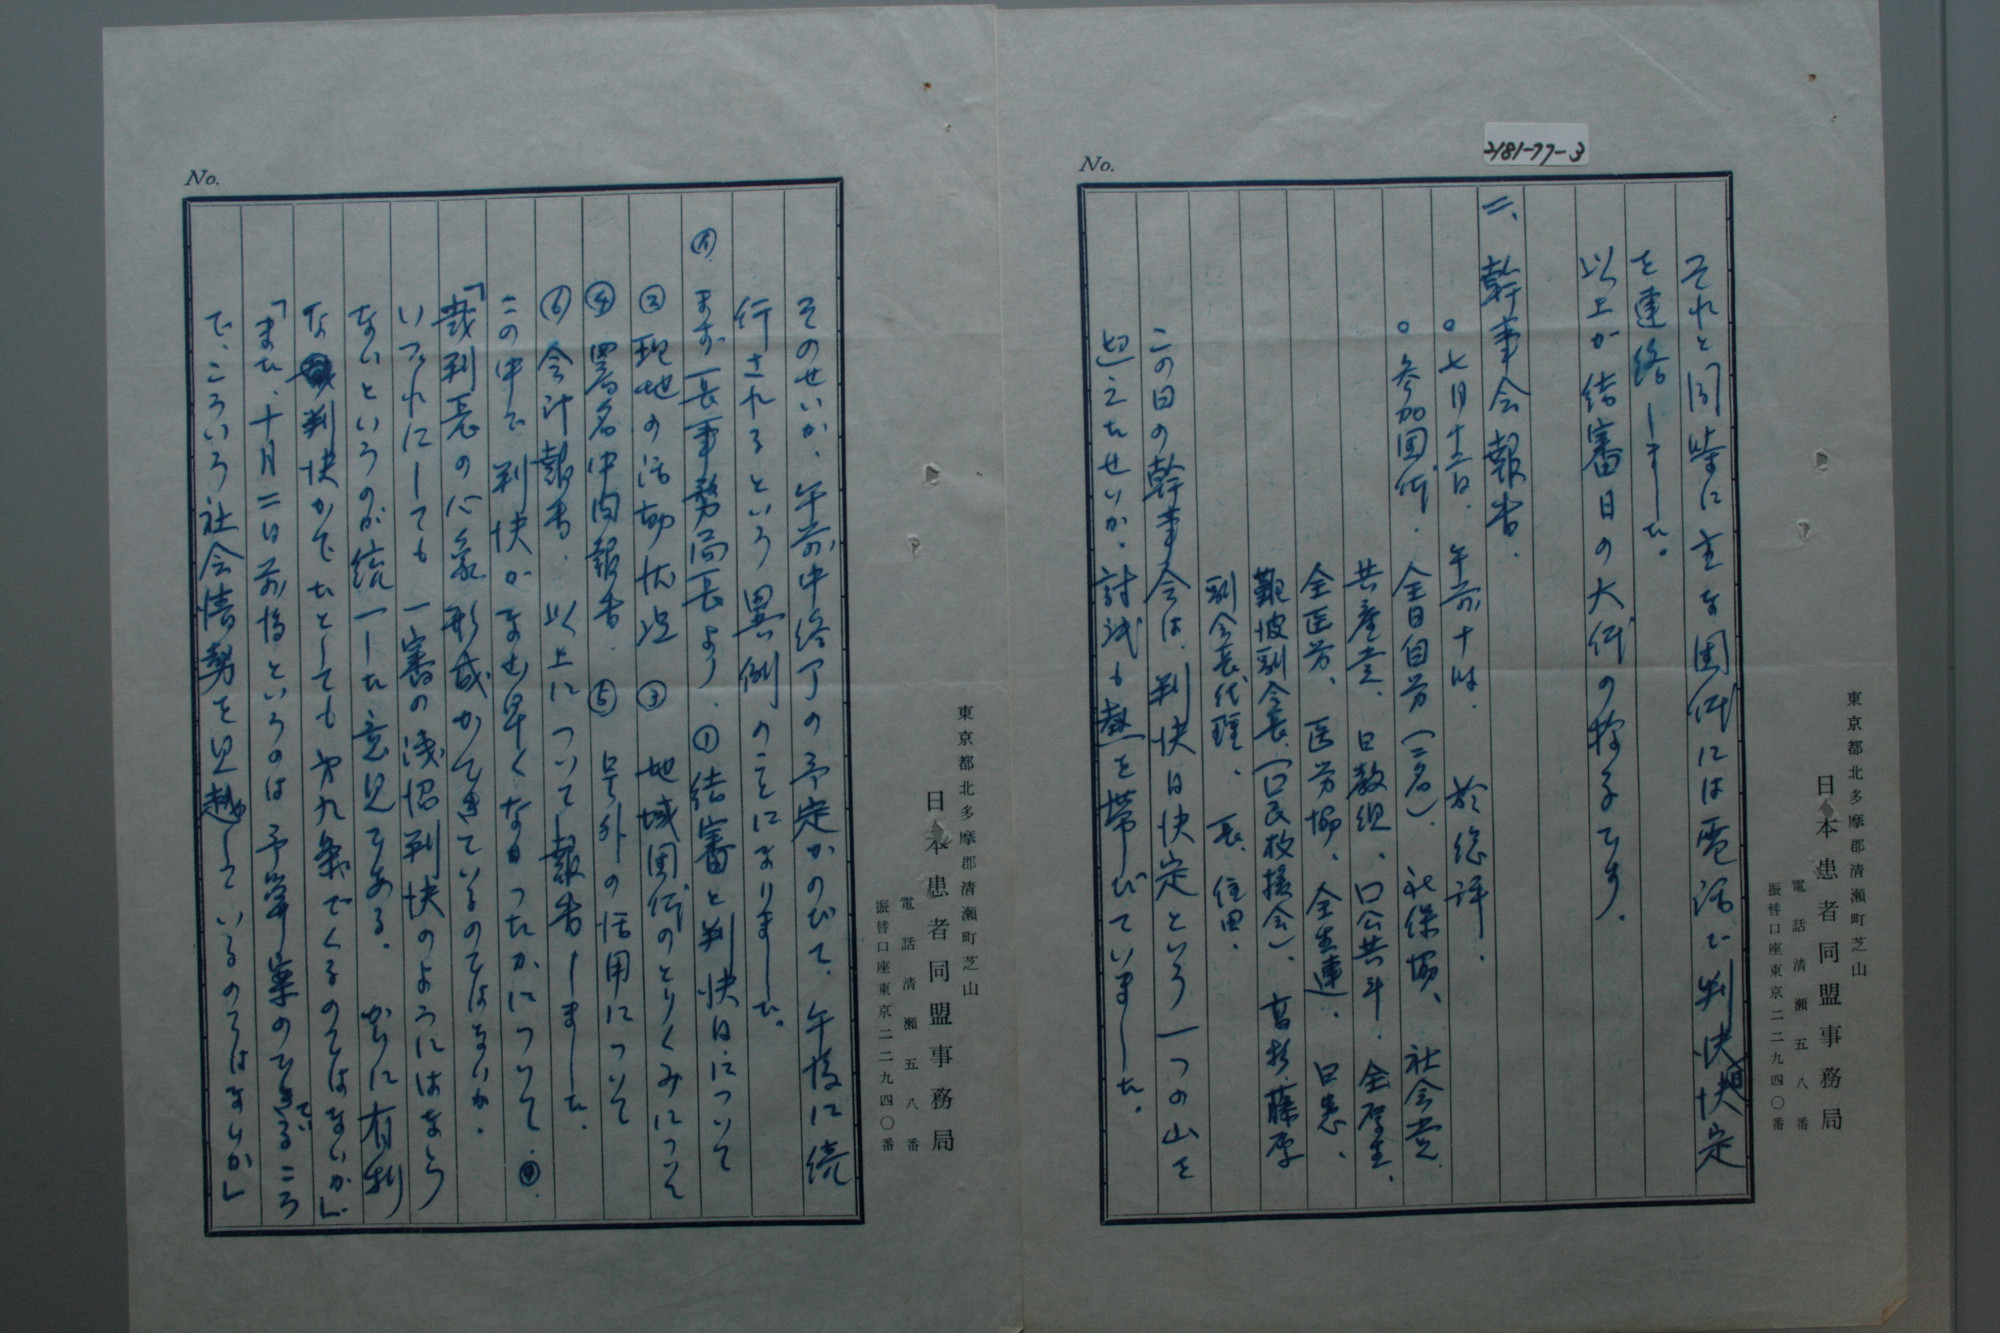 2181-77-3
No.
それと同時に主な団体には電話で判決日決定
を連絡しました。
以上が結審日の大体の様子です。
二、幹事会報告.
○七月十二日、午前十時. 於総評.
○参加団体. 全日自労(二名)、社保協、社会党、
共産党、日教組、口公共斗、全厚生、
全医労、医労協、全生連、日患、
難波副会長、(口民救援会)、高杉、藤原
副会長代理、長、住田、
この日の幹事会は、判決日決定という一つの山を
迎えたせいか、討議も熱を帯びていました。
東京都北多摩郡清瀬町芝山
日本患者同盟事務局
電話清瀬五八番
振替口座東京二二九四〇番
No.
そのせいか、午前中終了の予定がのびて、午後に続
行されるという異例のことになりました。
まず長事務局長より、①結審と判決日について
②現地の活動状況 ③地域団体のとりくみについて
④署名中間報告. ⑤号外の活用について
⑥会計報告、以上について報告しました。
この中で判決がなぜ早くなったかについて、
「裁判長の心象形成ができているのではないか.
いづれにしても一審の浅沼判決のようにはなら
ないというのが統一した意見である。かりに有利
な判決がでたとしても 第九条でくるのではないか」
「また、十月二日前後というのは予算案のできるころ
で、こういう社会情勢を見越しているのではないか」
東京都北多摩郡清瀬町芝山
日本患者同盟事務局
電話清瀬五八番
振替口座東京二二九四〇番